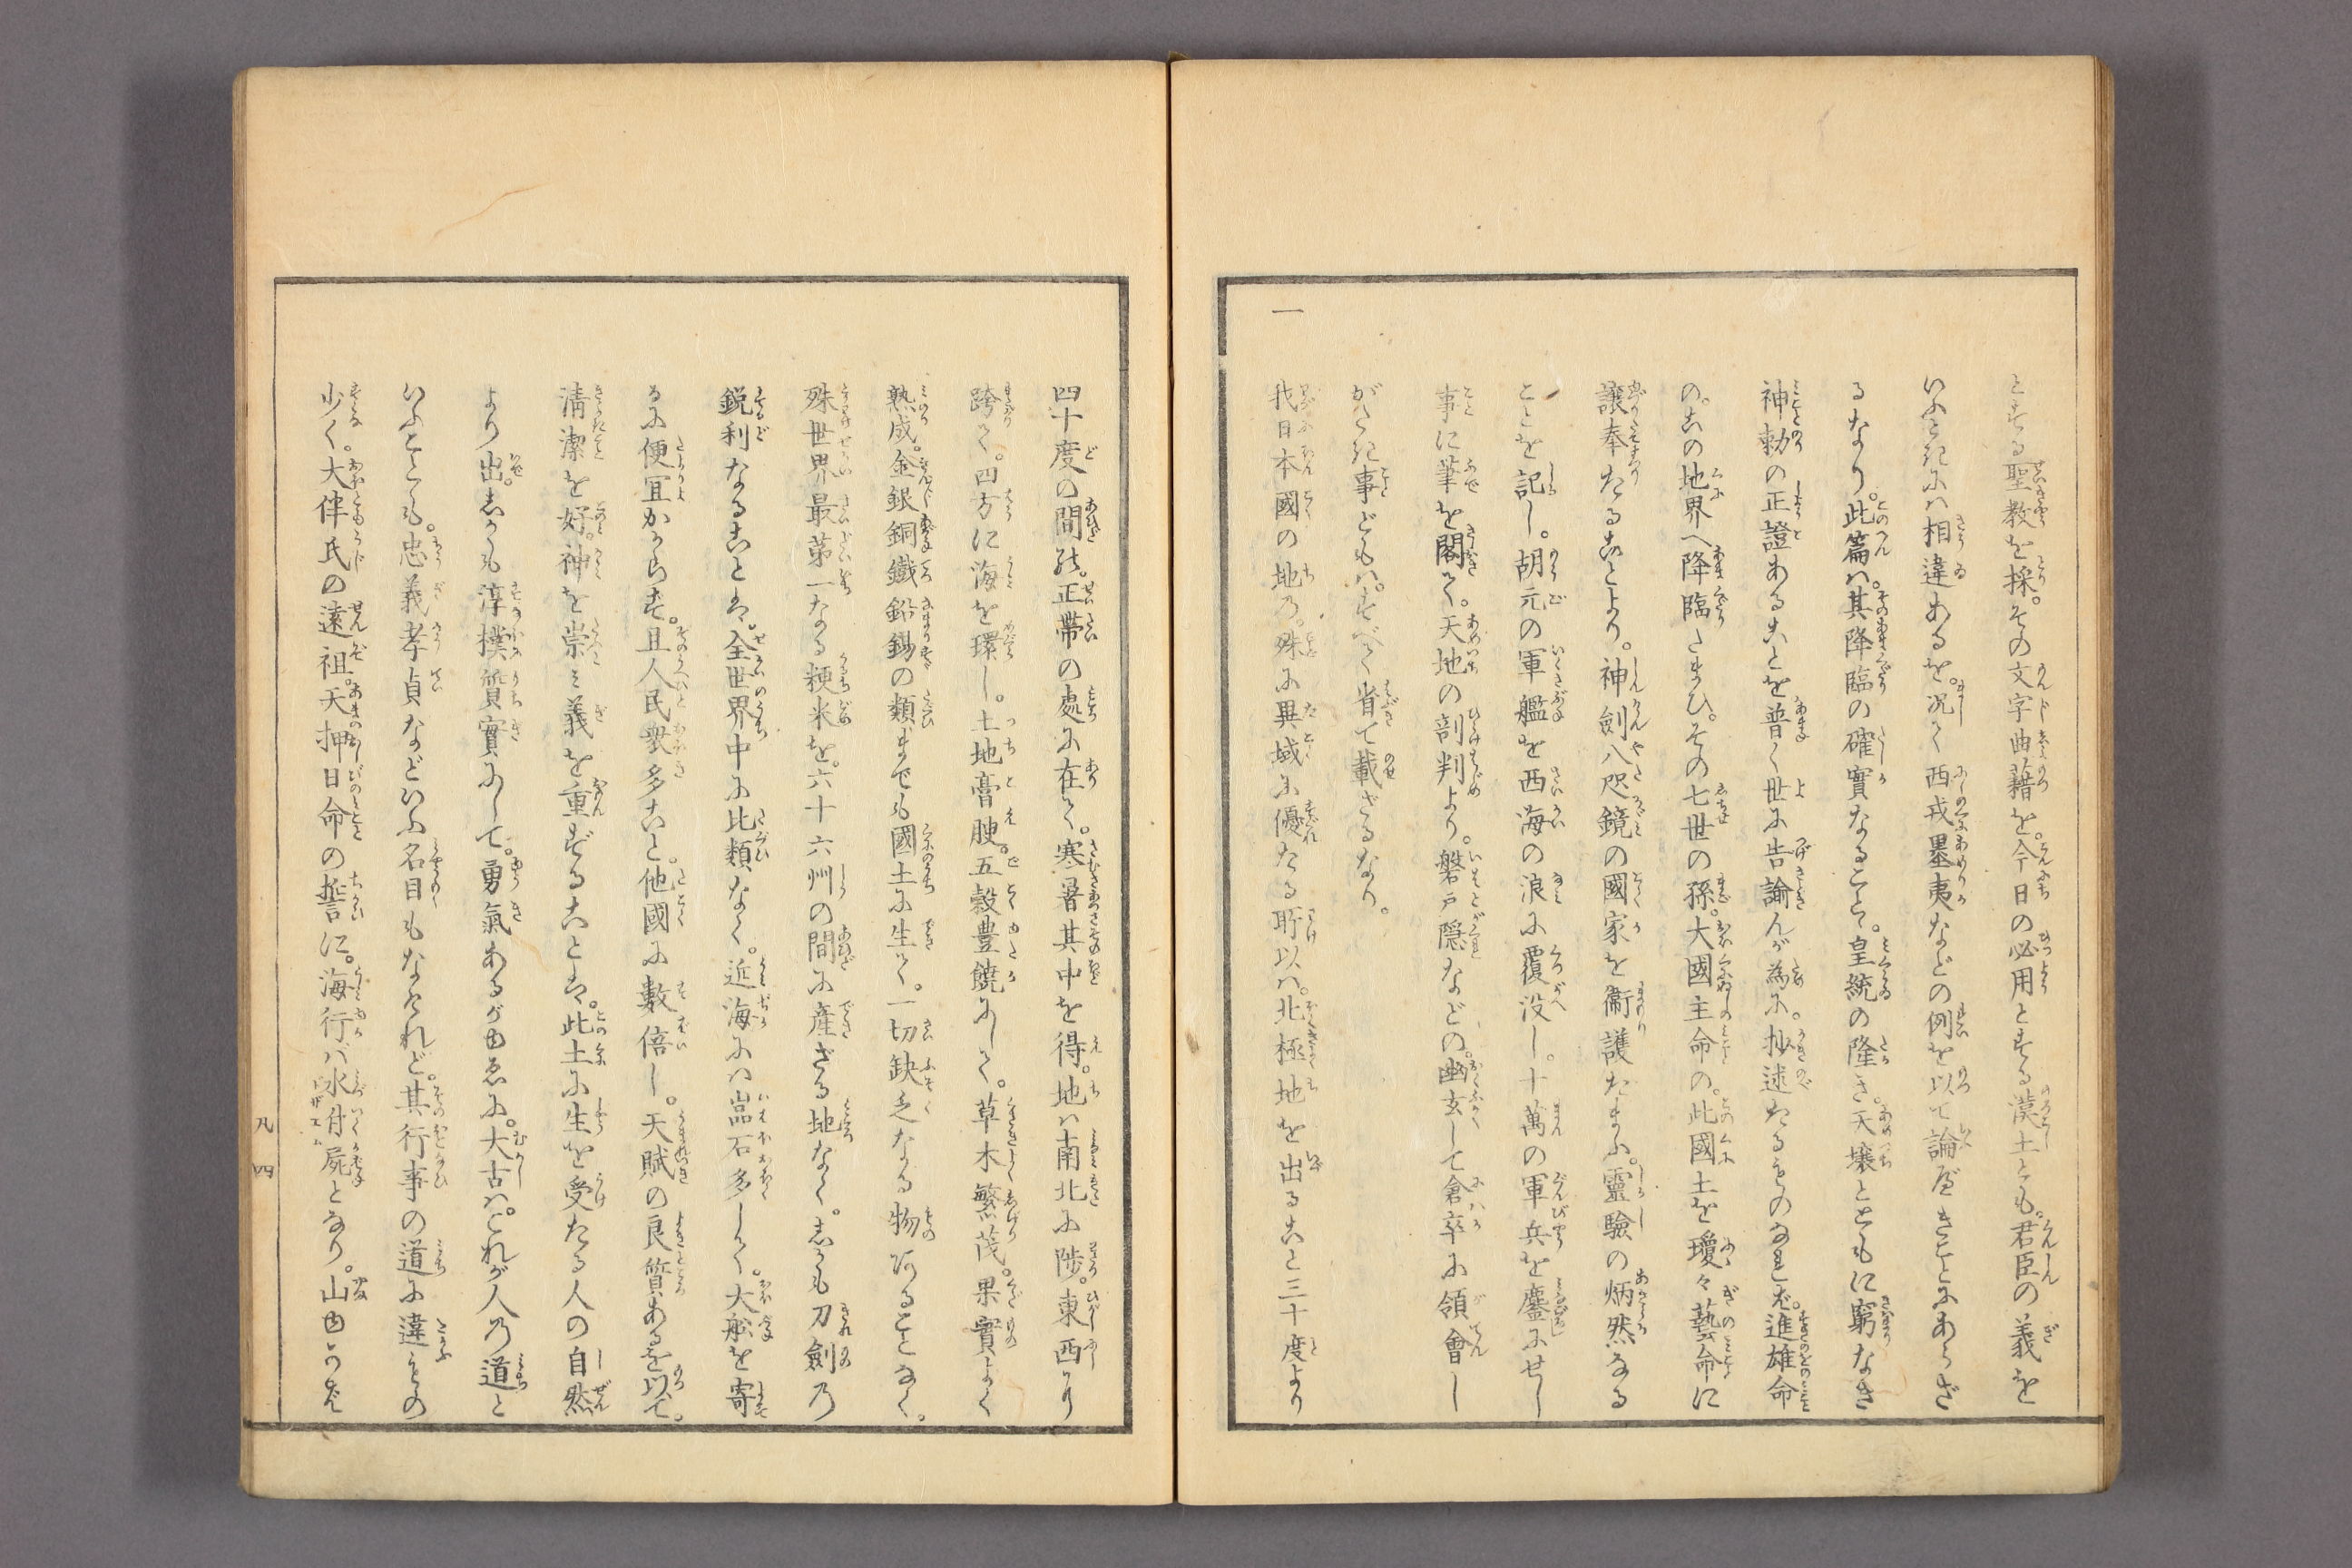 とする聖教を採。その文字曲籍を。今日の必用とする漢土とも。君臣の義を
いふときには相違あるを。况て西戎墨夷などの例を以て論べきことにあらざ
るなり。此篇は。其降臨の確實なること。皇統の隆き。天壤とともに窮なき
神勅の正證あることを普く世に告諭んが為に。抄述たるものなれど。進雄命
の。この地界へ降臨たまひ。その七世の孫。大國主命の。此國土を瓊々藝命に
讓奉たることより。神劍八咫鏡の國家を衞護たまふ。靈驗の炳然なる
ことを記し。胡元の軍艦を西海の浪に覆没し。十萬の軍兵を鏖にせし
事に筆を閣く。天地の剖判より。磐戸隠などの。幽玄して倉卒に領會し
がたき事どもは。すべて省て載ざるなり。
一 我日本國の地乃。殊に異域に優たる所以は。北極地を出ること三十度より
四十度の間に。正帶の處に在て。寒暑其中を得。地は南北に陟。東西に
跨て。四方に海を環し。土地膏腴。五穀豊饒にして。草木繁茂。果實よく
熟成。金銀銅鐵鉛錫の類までも國土に生て。一切缺乏なる物あることなく。
殊世界最第一なる粳米を。六十六州の間に産ざる地なく。しかも刀劍乃
鋭利なることは。全世界中に比類なく。近海には嵓石多して。大舩を寄
るに便冝からず。且人民衆多こと。他國に數倍し。天賦の良質あるを以て。
清潔を好。神を崇ミ義を重ずることは。此土に生を受たる人の自然
より出。しかも淳撲質實にして。勇氣あるがゆゑに。大古は。これが人乃道と
いふことも。忠義孝貞などいふ名目もなけれど。其行事の道に違もの
少く。大伴氏の遠祖。天押日命の誓に。海行ば水月屍となり。山由かば
凡 四